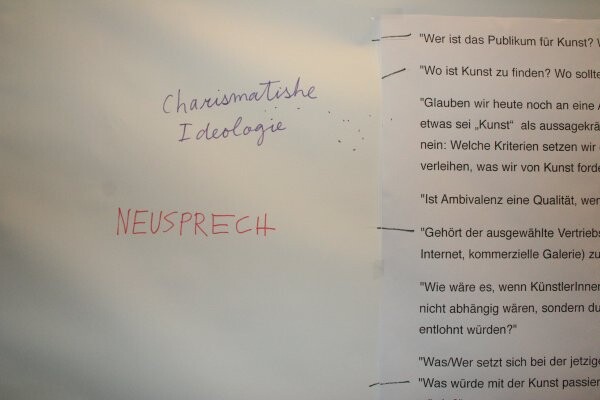 Charismatishe
Ideologie
NEUSPRECH
"Wer ist das Publikum für Kunst?
"Wo ist Kunst zu finden? Wo sollte
"Glauben wir heute noch an eine
etwas sei „Kunst“ als aussagekrä
nein: Welche Kriterien setzen wir
verleihen, was wir von Kunst forde
"Ist Ambivalenz eine Qualität, wer
"Gehört der ausgewählte Vertriebs
Internet, kommerzielle Galerie) zu
"Wie wäre es, wenn KünstlerInnen
nicht abhängig wären, sondern du
entlohnt würden?"
"Was/Wer setzt sich bei der jetzige
"Was würde mit der Kunst passier